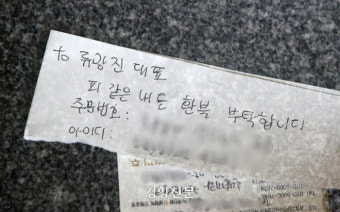 to 류광진 대표
피 같은 내 돈 한북 부탁합니다
주문번호 :
아이디 :
경향신문